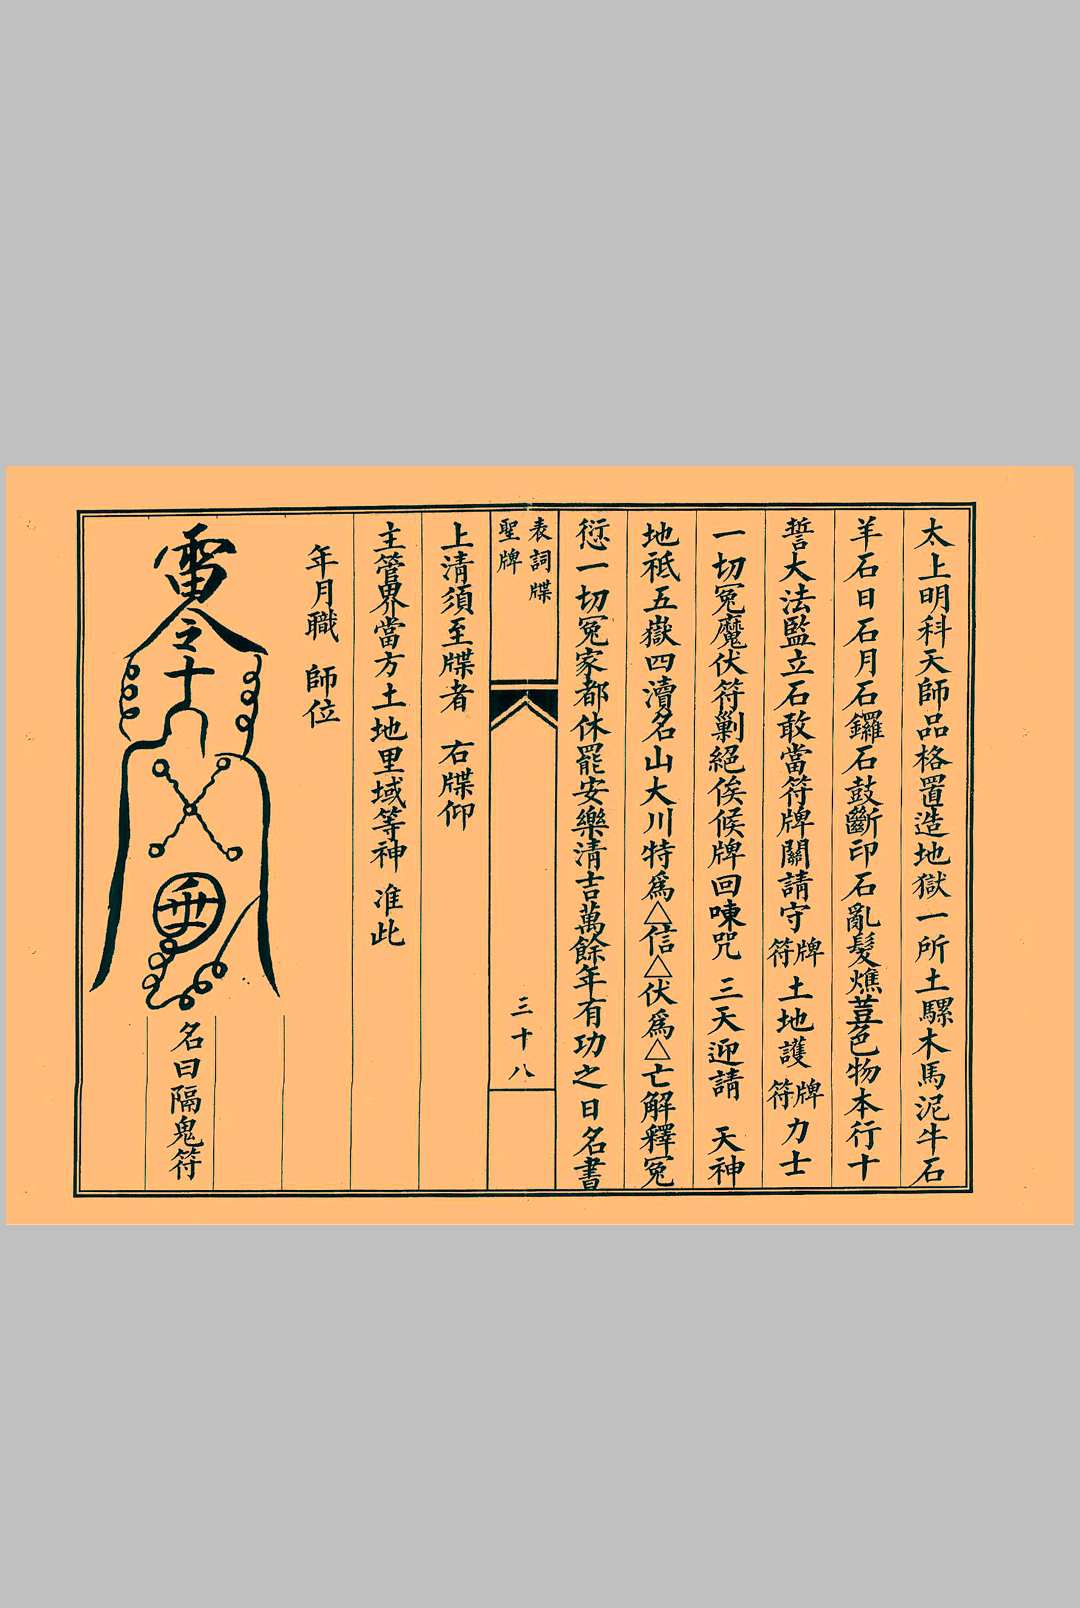 太上明科天師品格置造地獄一所土騾木馬泥牛石
羊石日石月石鑼石鼓斷印石亂髮燋荳色物本行十
誓大法監立石敢當符牌關請守牌符土地護牌符力士
一切冤魔伏符剿絕俟候牌回喚咒 三天迎請 天神
地祇五嶽四瀆名山大川特爲△信△伏爲△亡解釋冤
愆一切冤家都休罷安樂清吉萬餘年有功之日名書
表詞牒
聖牌
三十八
上清須至牒者 右牒仰
主管界當方土地里域等神 准此
年月職 師位
雷令
名曰隔鬼符